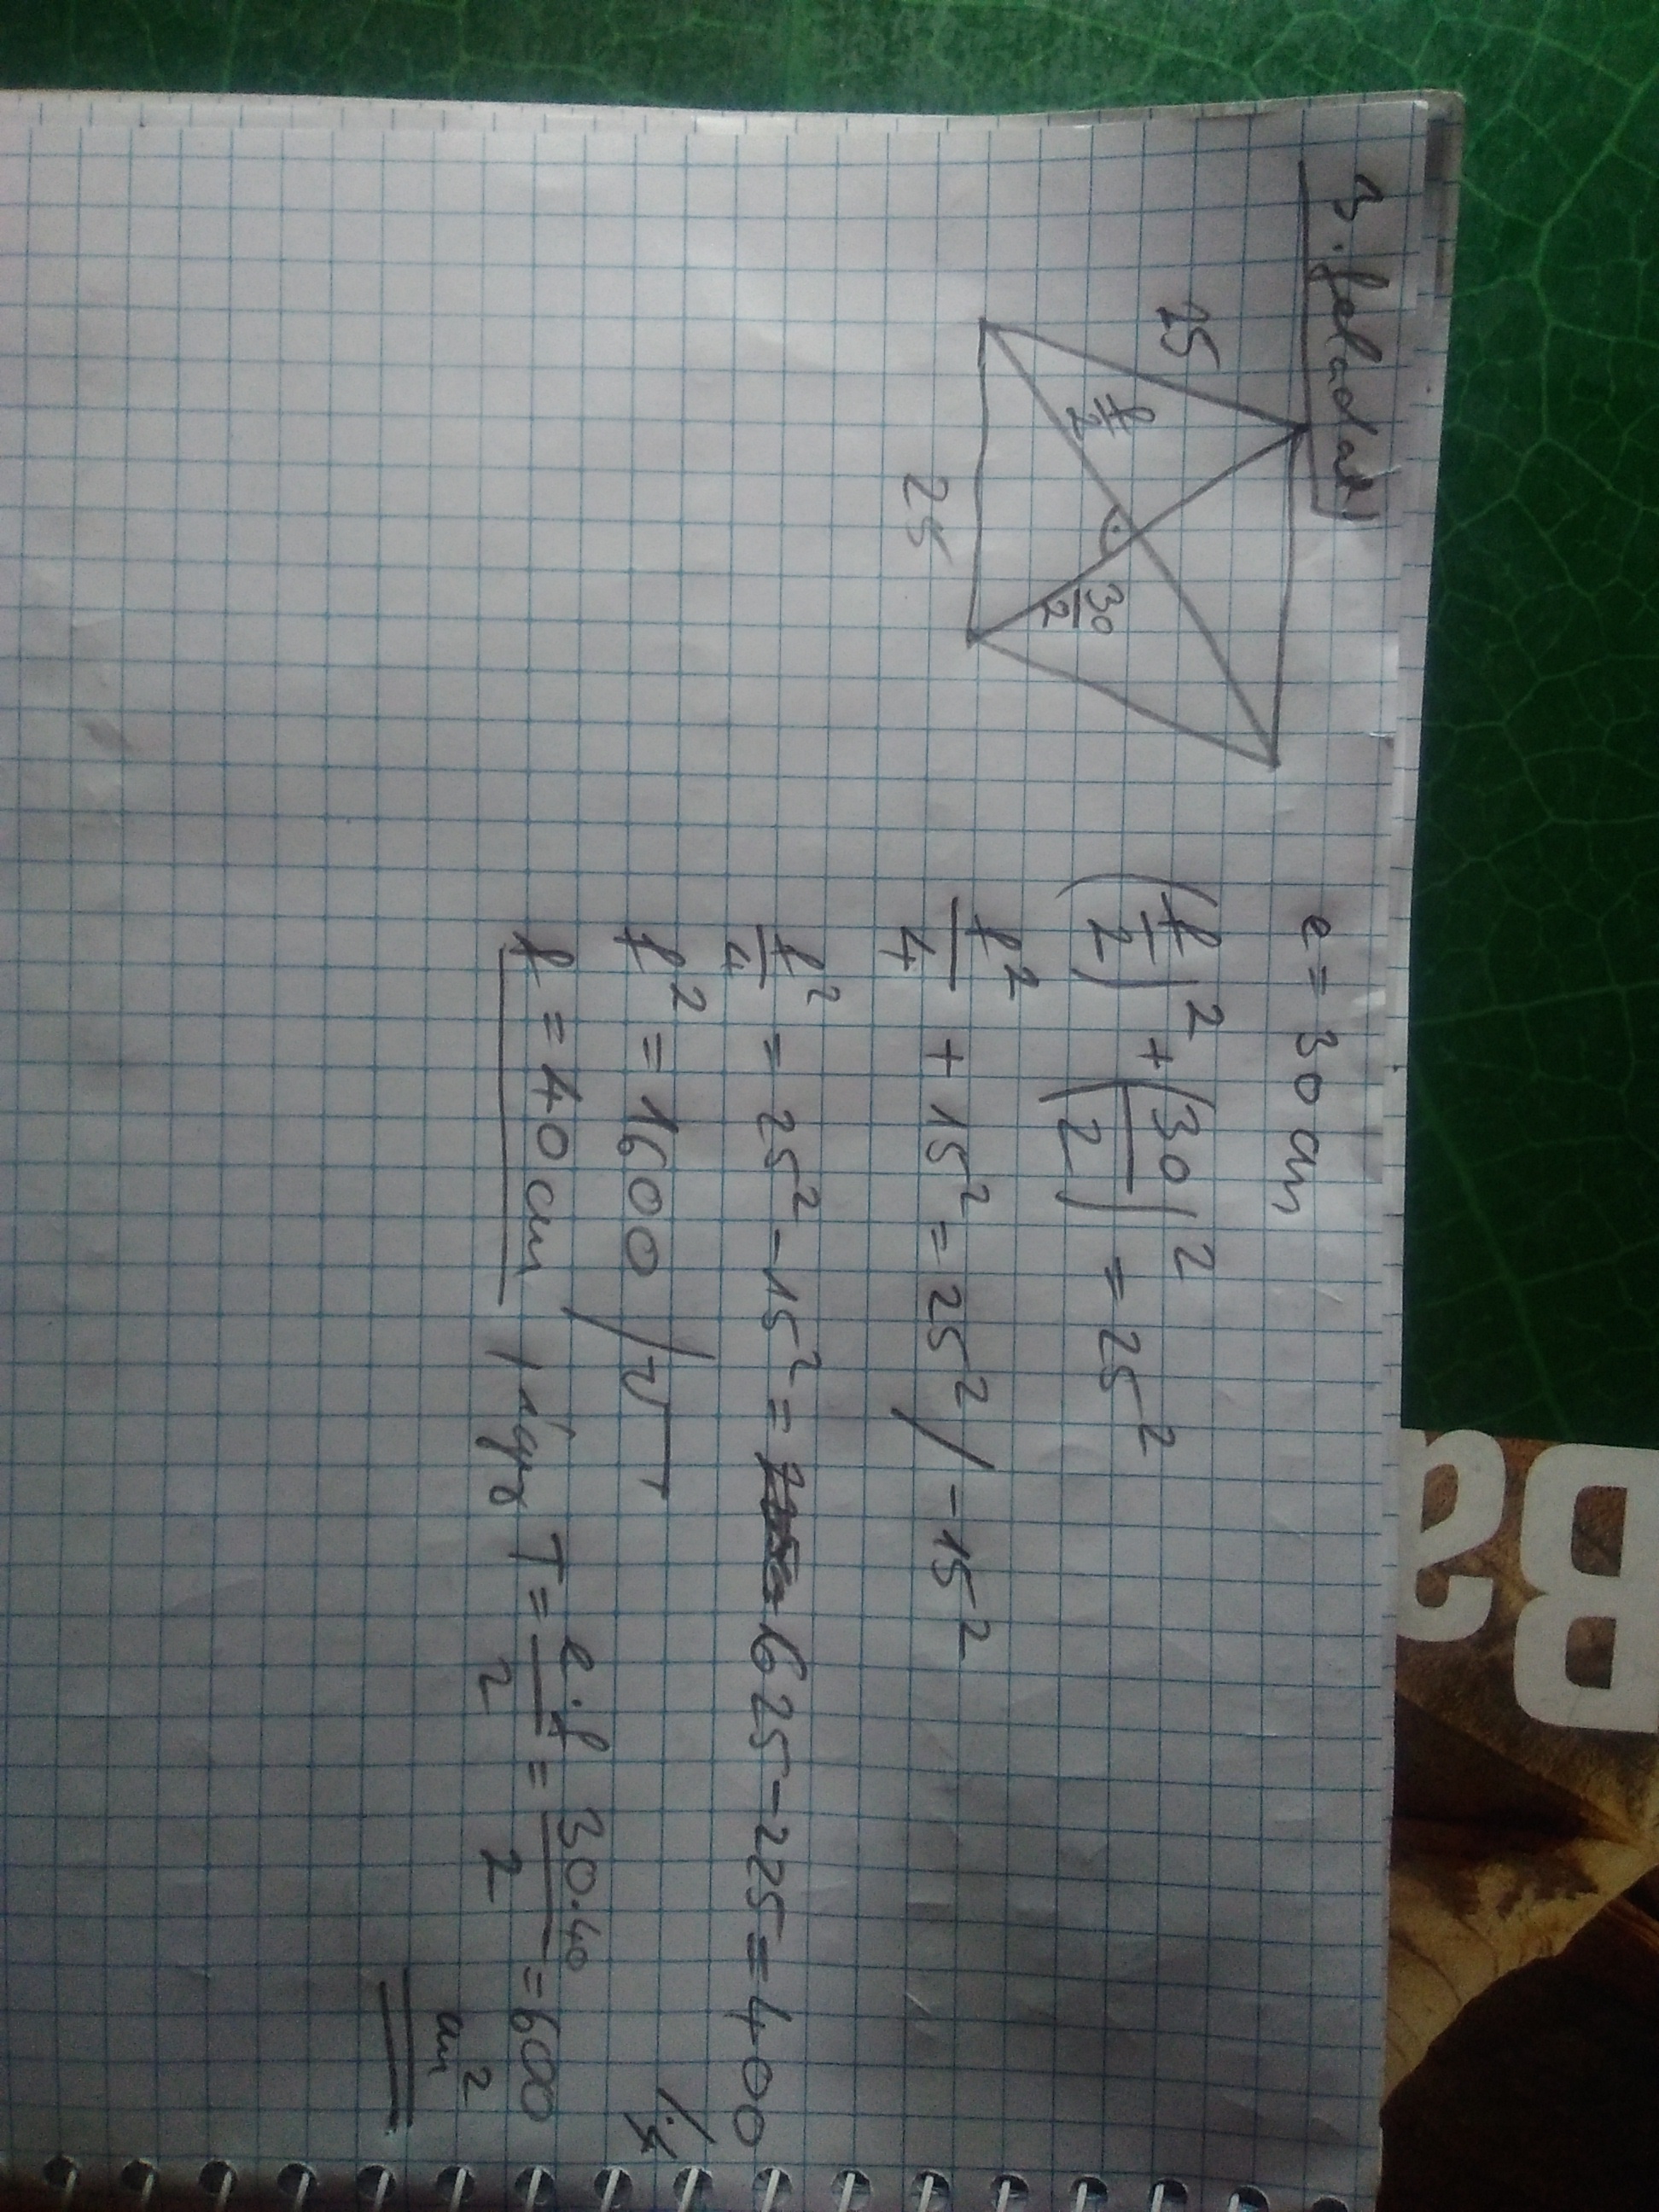 3. feladat
25
f/2
30/2
25
e = 30 cm
(f/2)² + (30/2)² = 25²
f²/4 + 15² = 25² / -15²
f²/4 = 25² - 15² = 625 - 225 = 400 /·4
f² = 1600 /√
f = 40 cm, így T = e·f/2 = 30·40/2 = 600 cm²
Ba